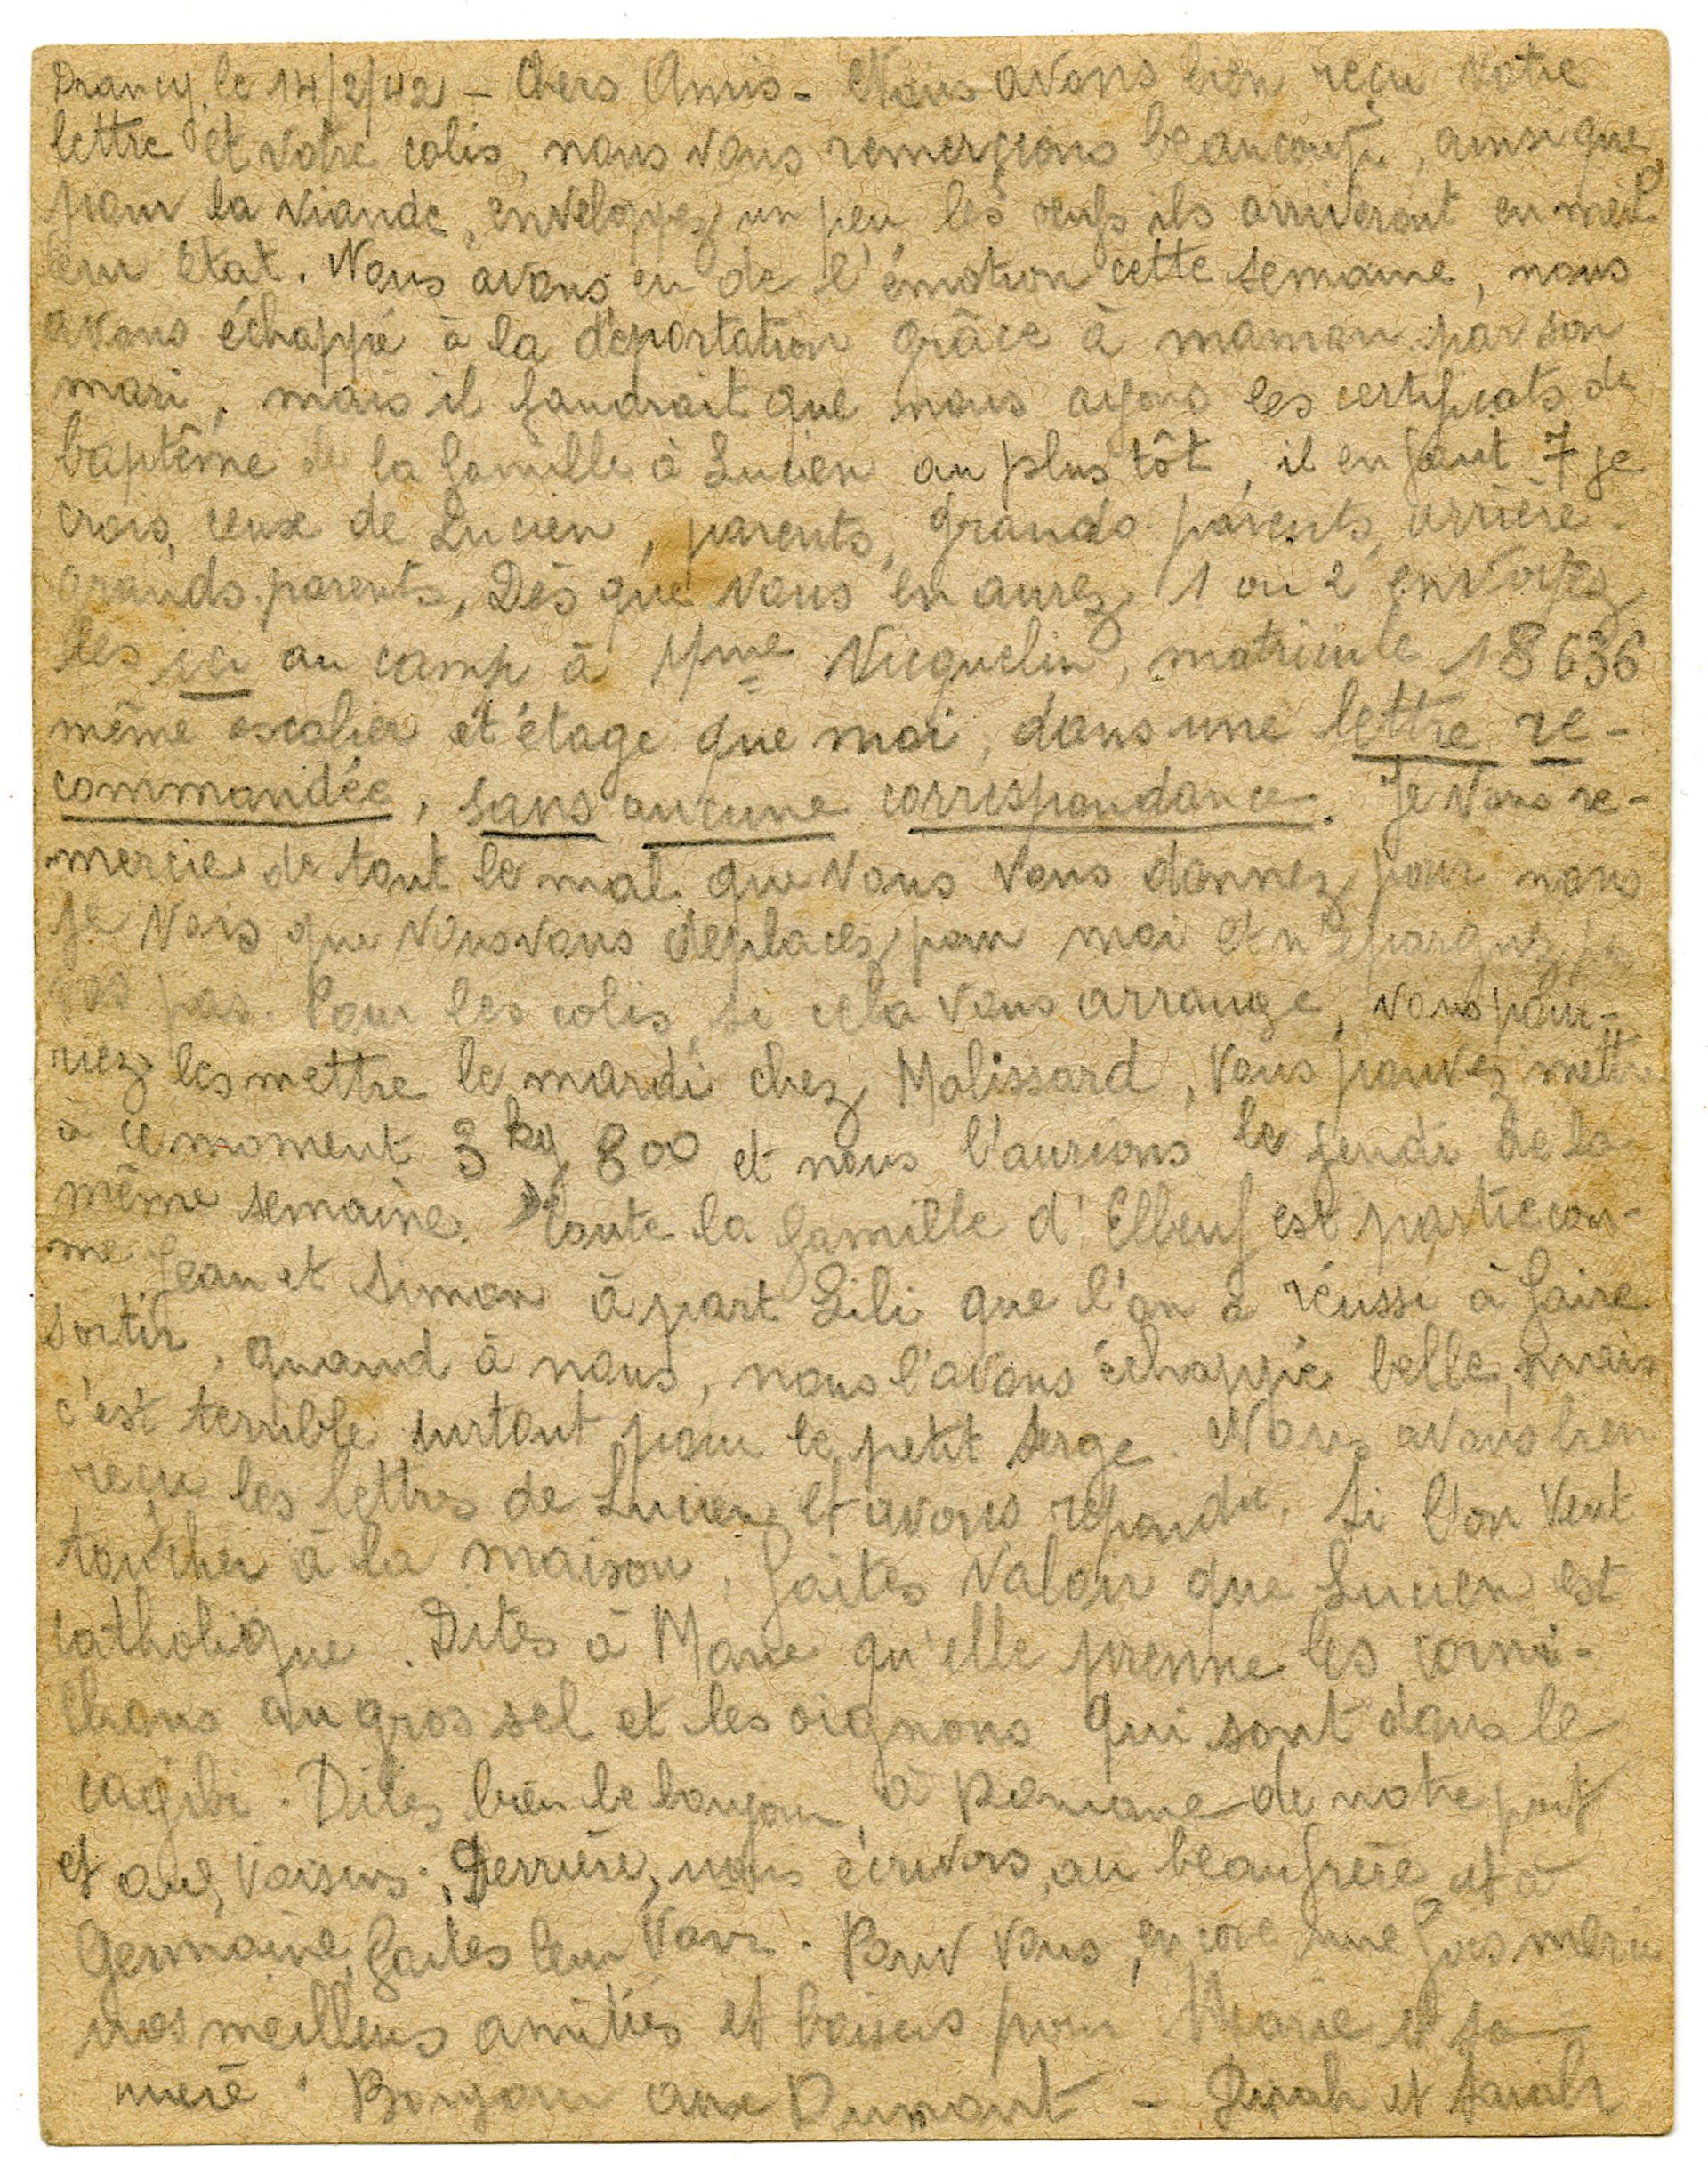 Drancy, le 14/2/42 – Chers Amis – Nous avons bien reçu votre
lettre et votre colis, nous vous remerçions beaucoup, ainsi que
pour la viande, enveloppez un peu les œufs ils arriveront en meil
leur état. Nous avons eu de l'émotion cette semaine, nous
avons échappé à la déportation grâce à maman par son
mari, mais il faudrait que nous ayons les certificats de
baptême de la famille à Lucien au plus tôt, il en faut 7 je
crois, ceux de Lucien, parents, grands parents, arrière-
grands parents, Dès que vous en aurez 1 ou 2 envoyez
les ici au camp à Mme Vicquelin, matricule 18636
même escalier et étage que moi, dans une lettre re-
commandée, sans aucune correspondance. Je vous re-
mercie de tout le mal que vous vous donnez pour nous
je vois que vous vous déplacez pour moi et n'épargnez
pas. Pour les colis, si cela vous arrange, vous pour-
riez les mettre le mardi chez Malissard, vous pouvez mettre
à ce moment 3 kg 800 et nous l'aurions le jeudi de la
même semaine. Toute la famille d'Elbeuf est partie com-
me Jean et Simon à part Lili que l'on a réussi à faire
sortir, quand à nous, nous l'avons échappé belle, mais
c'est terrible surtout pour le petit Serge. Nous avons bien
reçu les lettres de Lucien et avons répondu. Si l'on veut
toucher à la maison, faites valoir que Lucien est
catholique. Dites à Marie qu'elle prenne les corni-
chons au gros sel et les oignons qui sont dans le
cagibi. Dites bien le bonjour à Romane de notre part
et aux voisins. Derrière, nous écrivons au beaufrère et à
Germaine, faites leur voir. Pour vous, encore une fois merci
nos meilleurs amitiés et baisers pour Marie et sa
mère. Bonjour aux Dumont – et Sarah